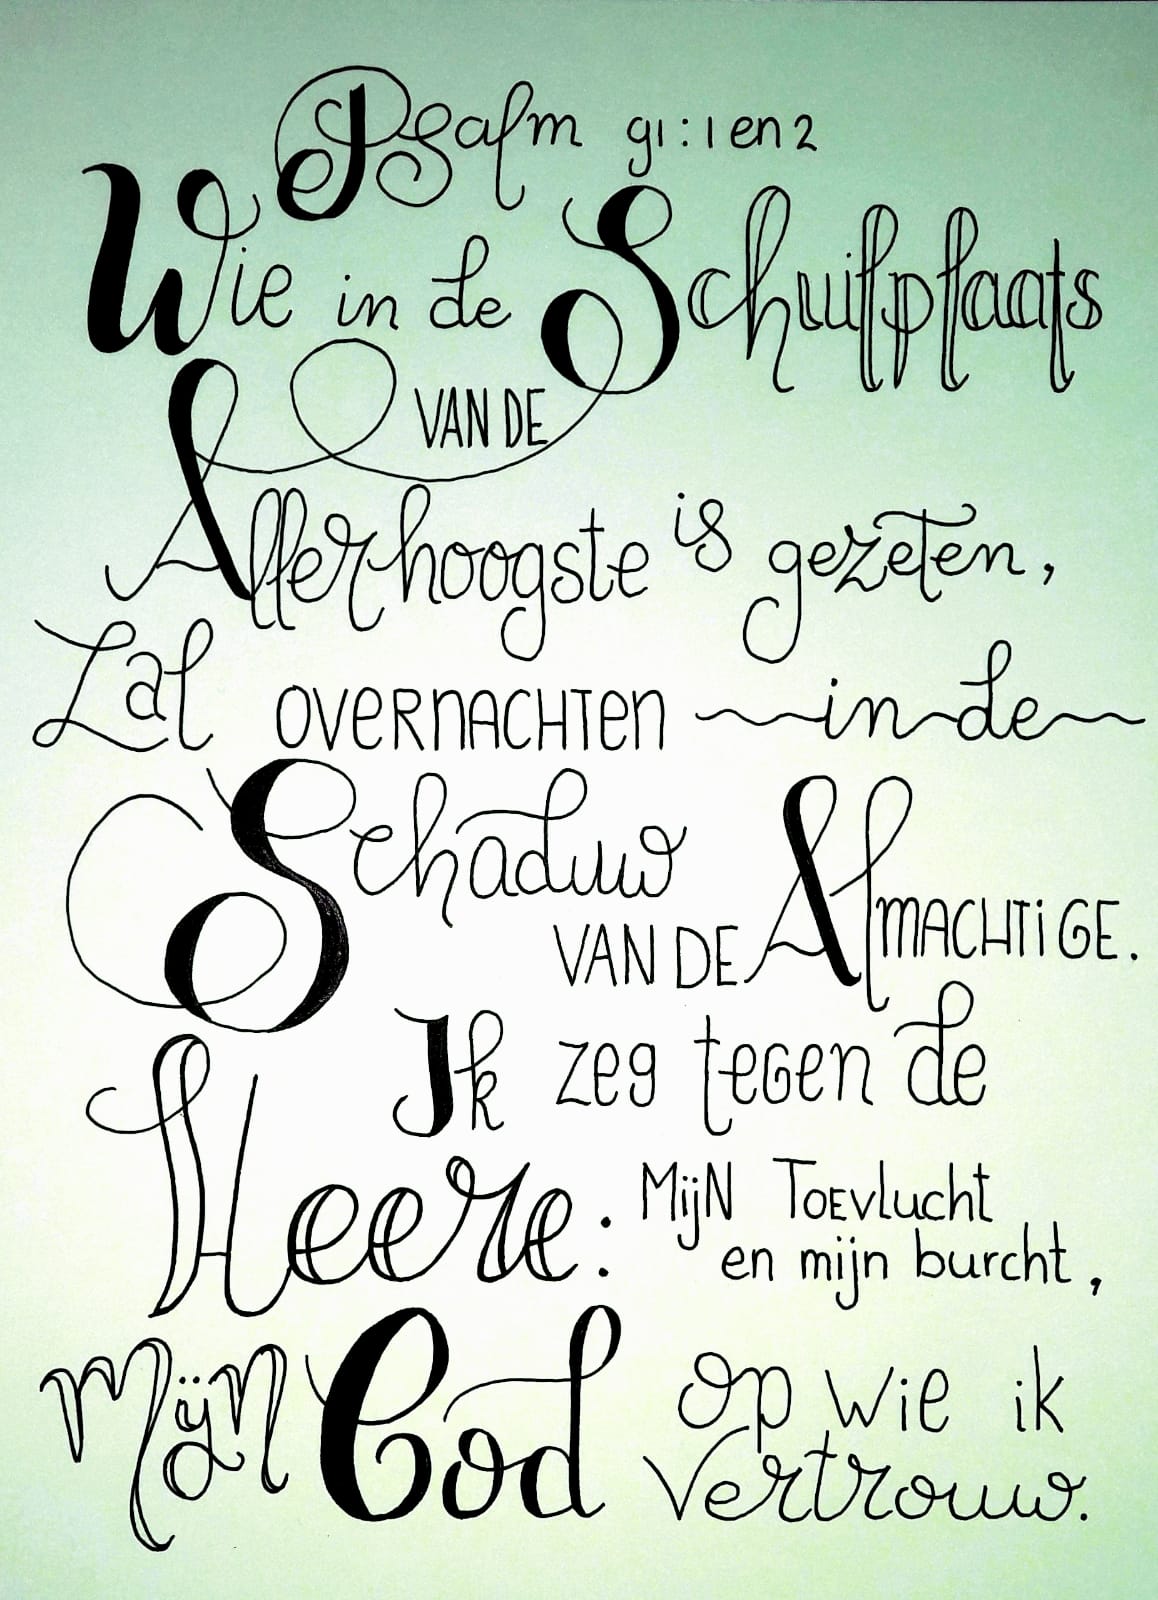 Psalm 91:1 en 2
Wie in de Schuilplaats
VAN DE
Allerhoogste is gezeten,
Zal OVERNACHTEN in de
Schaduw
VAN DE AlMACHTIGE.
Ik zeg tegen de
Heere: MijN TOEVlucht
en mijn burcht,
MijN God op wie ik
vertrouw.